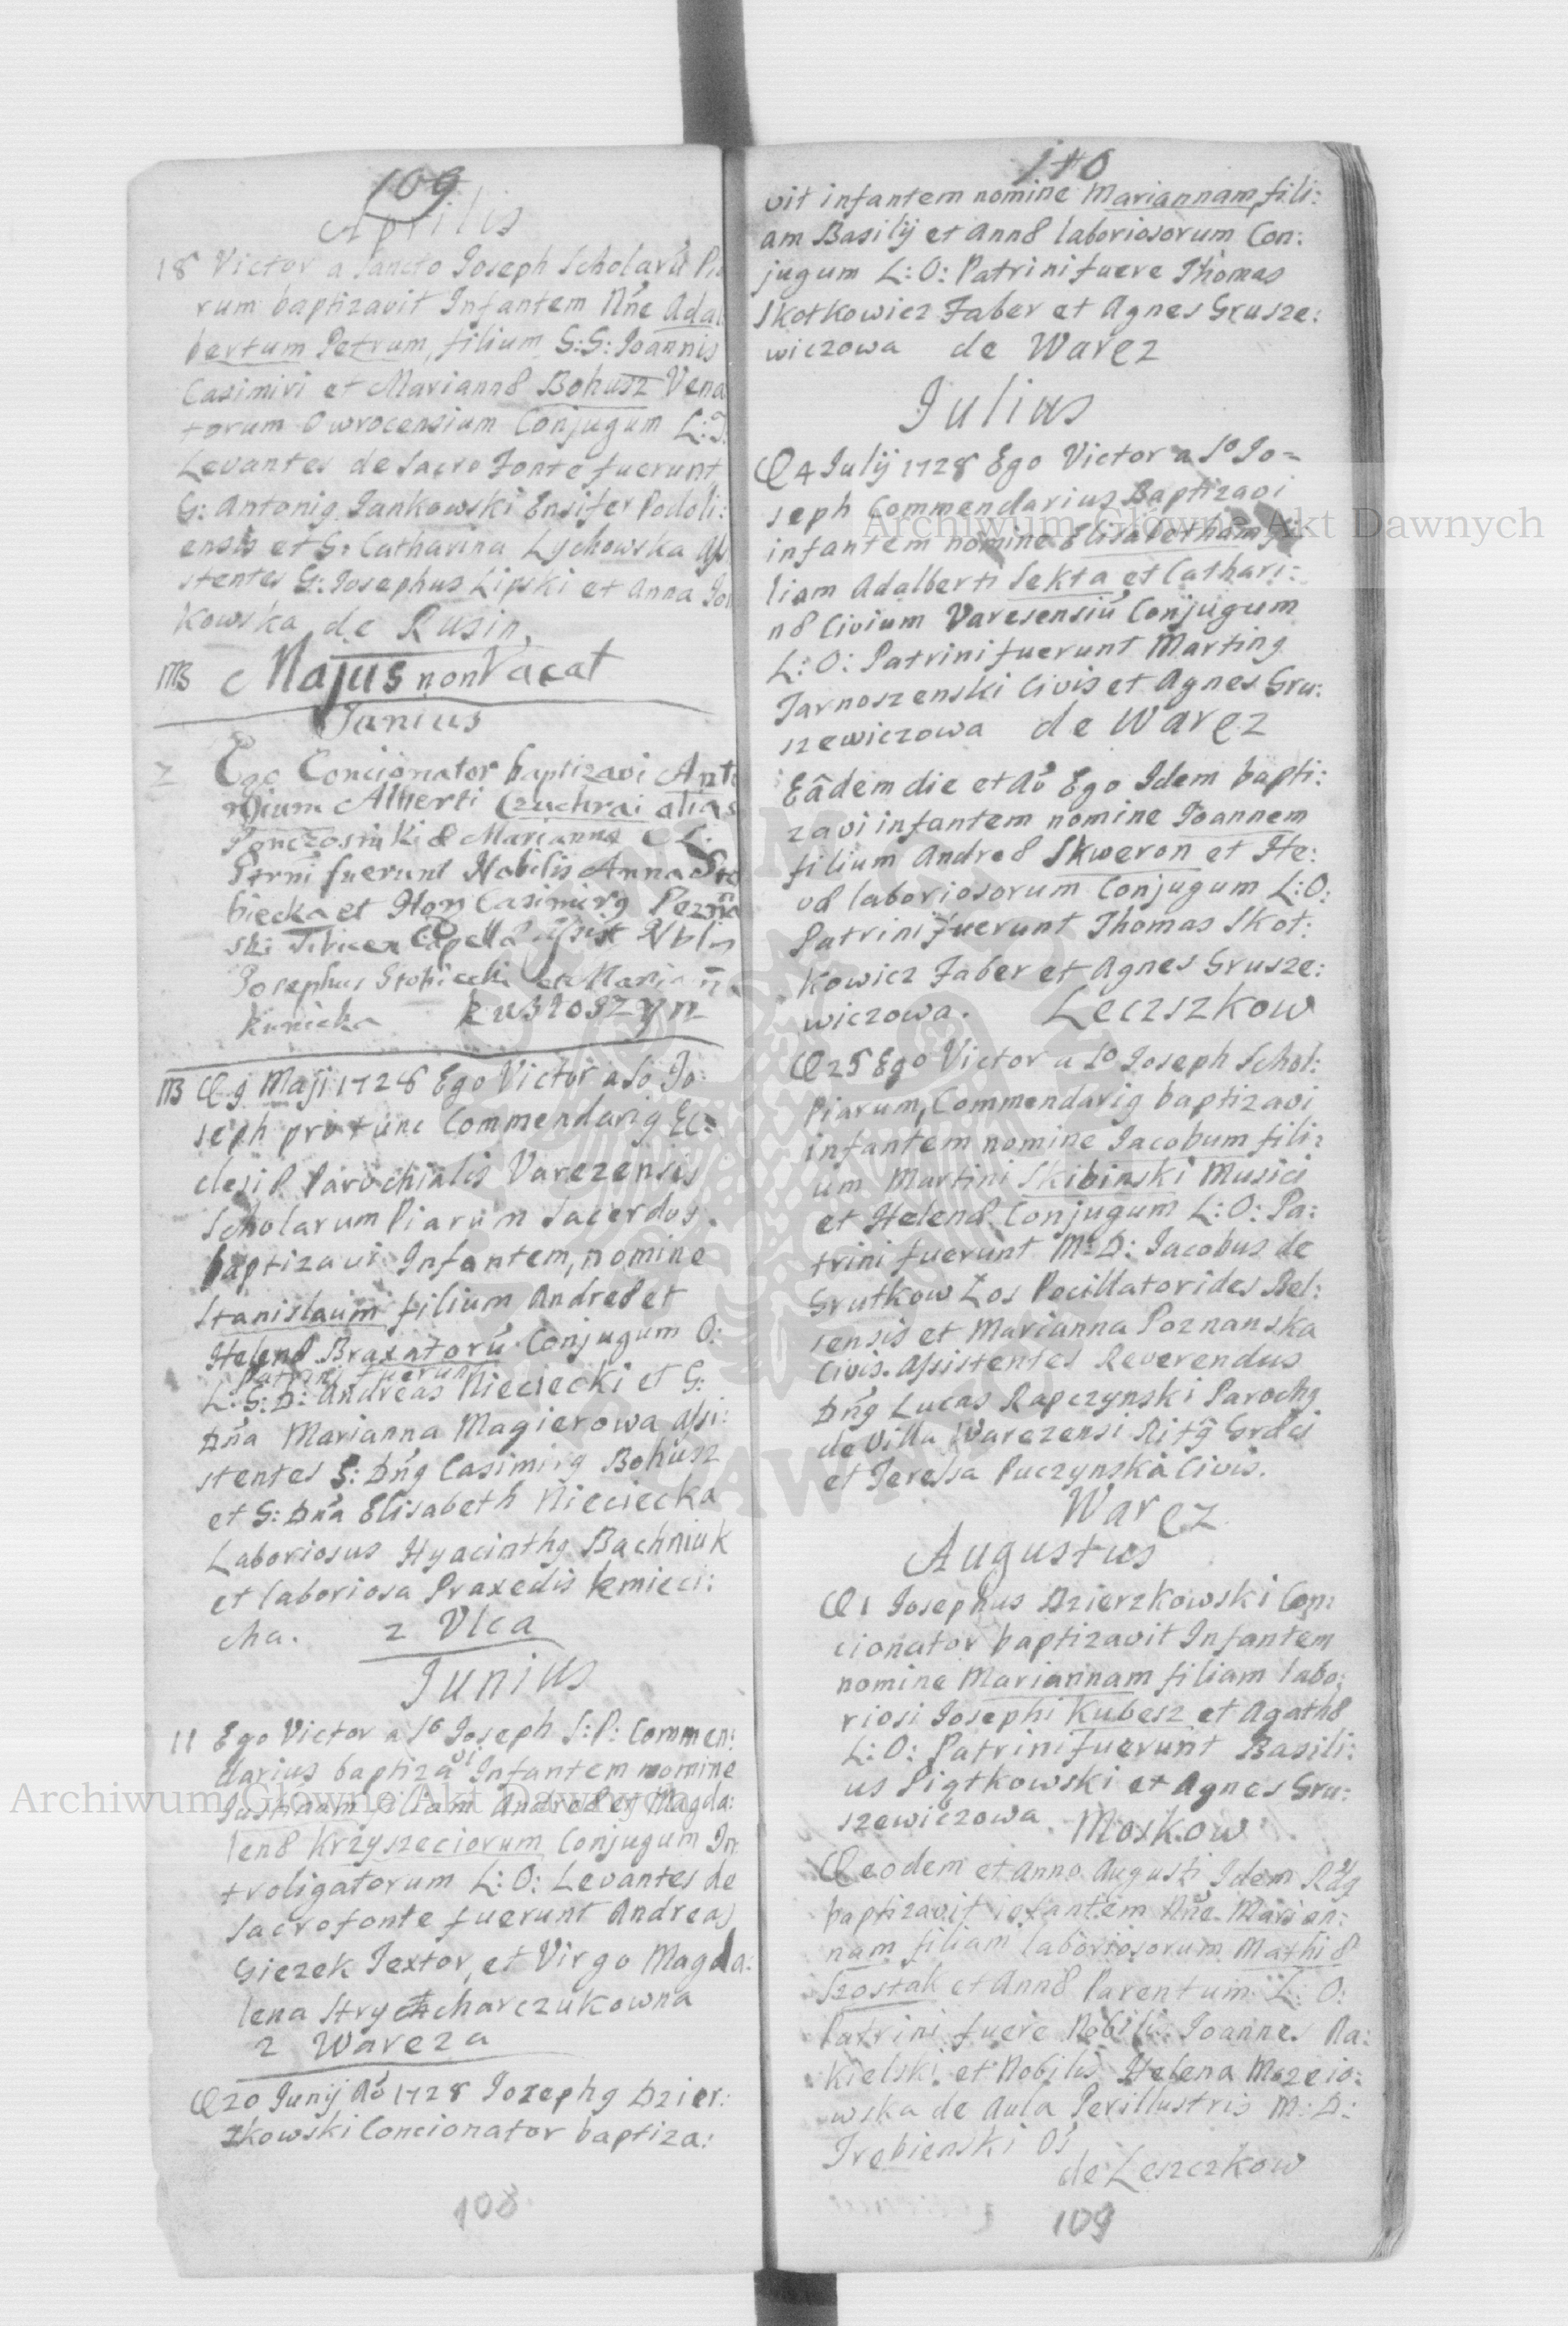 109
Aprilis
18 Victor a Sancto Joseph Scholarũ Pia
rum baptizavit Infantem Nñe Adal
bertum Petrum, filium G:G: Joannis
Casimiri et Mariannæ Bohusz Vena
torum Owrocensium Conjugum L:T:
Levantes de Sacro Fonte fuerunt
G: Antonig Jankowski Ensifer Podoli:
ensis et G: Catharina Lychowska Assi
stentes G: Josephus Lipski et Anna
kowska de Rusin.
NB Majus non Vacat
Junius
2 Ego Concionator baptizavi Anto
nium Alberti Czuchrai alias
& Marianna C. L.
Ptrni fuerunt Nobilis Anna Sto
biecka et Hon Casimirg Pozna
ski Tibicen Capellæ Assist Nblis
Josephus Stobiecki et Marian
Kunicka Rusłoszyn
NB Œ 9 Maji 1728 Ego Victor a So Jo
seph pro tunc Commendarig Ec=
clesiæ Parochialis Varezensis
Scholarum Piarum Sacerdos
baptizavi Infantem, nomine
Stanislaum filium Andreæ et
Helenæ Braxatorũ Conjugum O:
Patrini fuerunt
L: G: D: Andreas Nieciecki et G:
Dña Marianna Magierowa Assi:
stentes G: Dñg Casimirg Bohusz
et G: Dña Elisabeth Nieciecka
Laboriosus Hyacinthg Bachniuk
et laboriosa Praxedis kmieci:
cha. z Vlca
Junius
11 Ego Victor a So Joseph S:P: Commen:
darius baptizavi Infantem nomine
Justinam filiam Andreæ et Magda:
lenæ Krzyszeciorum Conjugum In
troligatorum L: O: Levantes de
sacro fonte fuerunt Andreas
Giezek Textor, et Virgo Magda:
lena Strycharczukowna
z Wareza
Œ 20 Junij Aõ 1728 Jozephg Dzier:
zkowski Concionator baptiza:
108
110
vit infantem nomine Mariannam, fili:
am Basilij et Annæ laboriosorum Con:
jugum L: O: Patrini fuere Thomas
Skotkowicz Faber et Agnes Grusze:
wiczowa de Waręz
Julius
Œ 4 Julij 1728 Ego Victor a So Jo=
seph Commendarius Baptizavi
infantem nomine Elisabetham fi
liam Adalberti Sekta et Cathari:
næ Civium Varesensiũ Conjugum
L: O: Patrini fuerunt Marting
Jarnoszenski Civis et Agnes Gru:
szewiczowa de Waręz
Eâdem die et Aõ Ego Idem bapti:
zavi infantem nomine Joannem
filium Andreæ Skweron et He:
væ laboriosorum Conjugum L:O:
Patrini fuerunt Thomas Skot:
kowicz Faber et Agnes Grusze:
wiczowa. Leczszkow
Œ 25 Ego Victor a So Joseph Schol:
Piarum, Commendarig baptizavi
infantem nomine Jacobum fili:
um Martini Skibinski Musici
et Helenæ Conjugum L: O: Pa:
trini fuerunt M: D: Jacobus de
Grutkow Łos Pocillatorides Bel:
sensis et Marianna Poznanska
Civis. Assistentes Reverendus
Dñg Lucas Rapczynski Parochg
de Villa Warezensi Ritg Græci
et Teressa Puczynska Civis.
Waręz
Augustus
Œ 1 Josephus Dzierzkowski Con:
cionator baptizavit Infantem
nomine Mariannam filiam labo:
riosi Josephi Kubesz et Agathæ
L: O: Patrini fuerunt Basili:
us Piątkowski et Agnes Gru:
szewiczowa. Moskow
Œ eodem et Anno Augusti Idem Rdg
baptizavit infantem Nñe Marian:
nam filiam laboriosorum Mathiæ
Szostak et Annæ Parentum L: O:
Patrini fuere Nobilis Joannes Na:
kielski et Nobilis Helena Mozeio:
wska de Aula Perillustris M: D:
Trebienski
de Leszczkow
109
Archiwum Główne Akt Dawnych
Archiwum Główne Akt Dawnych